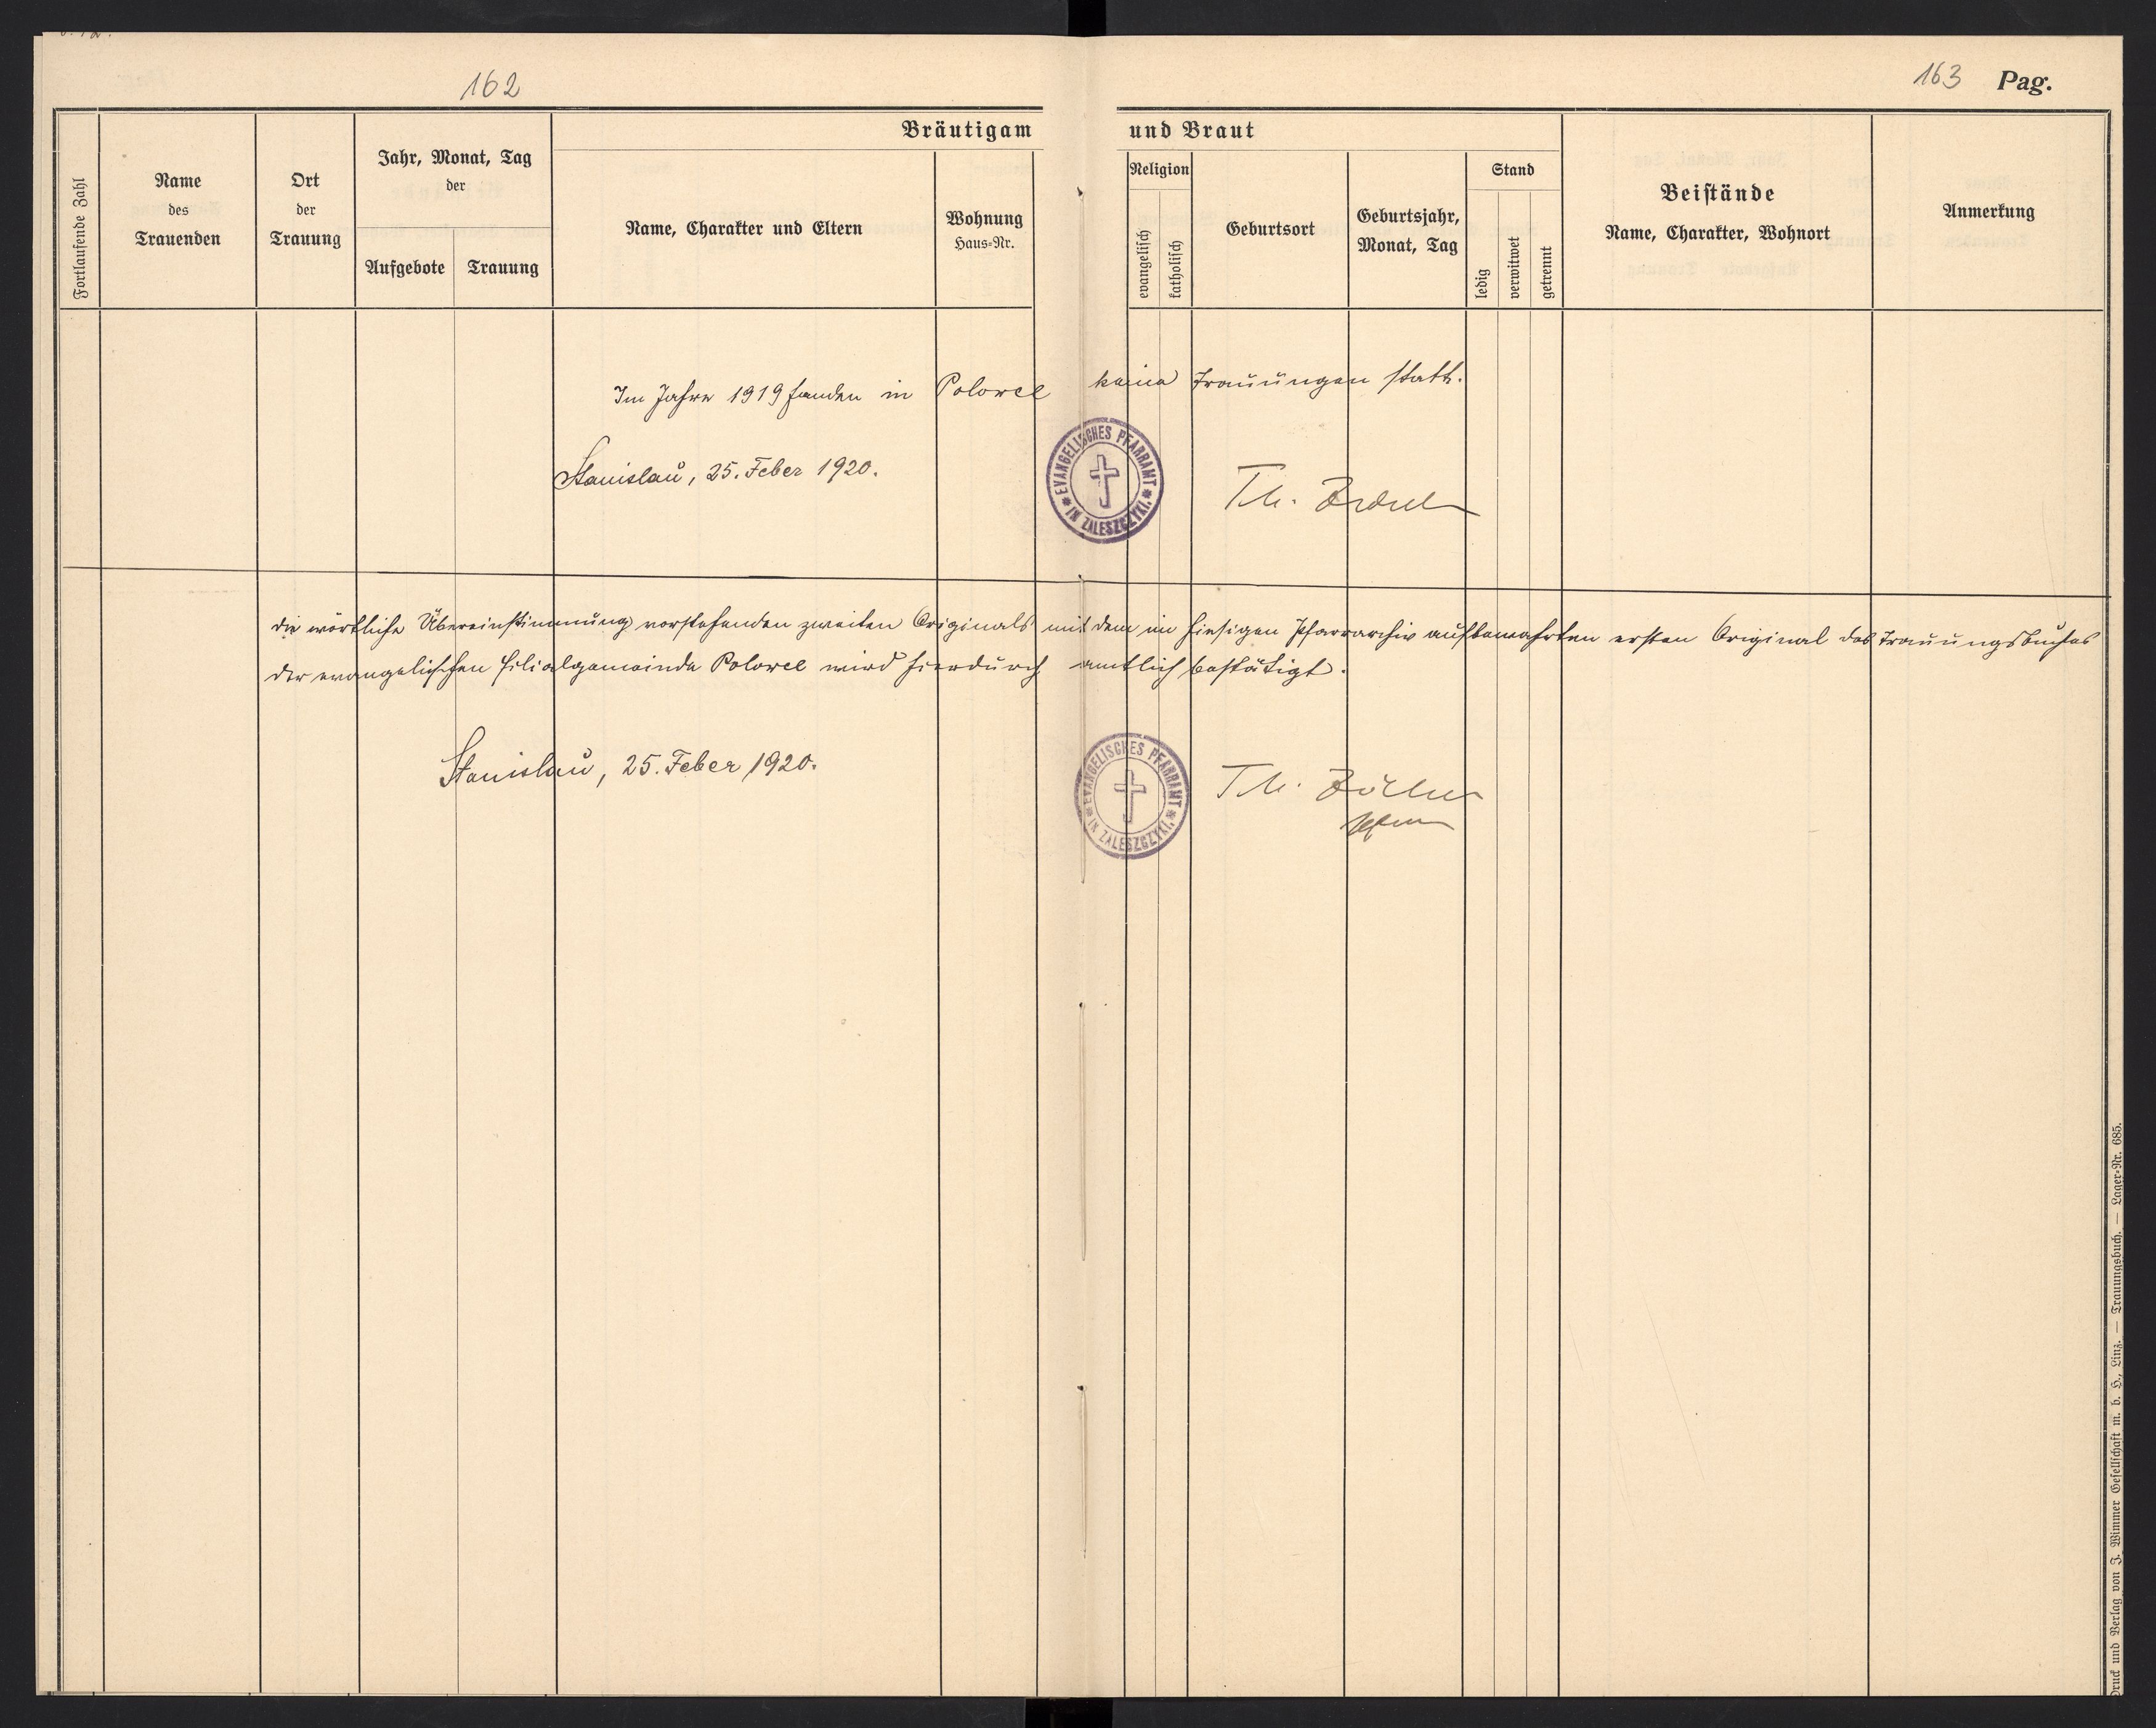 162
163 Pag.
Bräutigam und Braut
Fortlaufende Zahl
Name
des
Trauenden
Ort
der
Trauung
Jahr, Monat, Tag
der
Aufgebote
Trauung
Name, Charakter und Eltern
Wohnung
Haus-Nr.
Religion
evangelisch
katholisch
Geburtsort
Geburtsjahr,
Monat, Tag
Stand
ledig
verwitwet
getrennt
Beistände
Name, Charakter, Wohnort
Anmerkung
Im Jahre 1919 fanden in Polowce keine Trauungen statt.
Stanislau, 25. Feber 1920.
EVANGELISCHES PFARRAMT
IN ZALESZCZYKI.
Th. Zöckler
die wörtliche Übereinstimmung vorstehenden zweiten Originals mit dem im hiesigen Pfarrarchiv aufbewahrten ersten Original des Trauungsbuches
der evangelischen Filialgemeinde Polowce wird hierdurch amtlich bestätigt.
Stanislau, 25. Feber 1920.
EVANGELISCHES PFARRAMT
IN ZALESZCZYKI.
Th. Zöckler
Druck und Verlag von J. Wimmer Gesellschaft m. b. H., Linz. — Trauungsbuch. — Lager-Nr. 685.